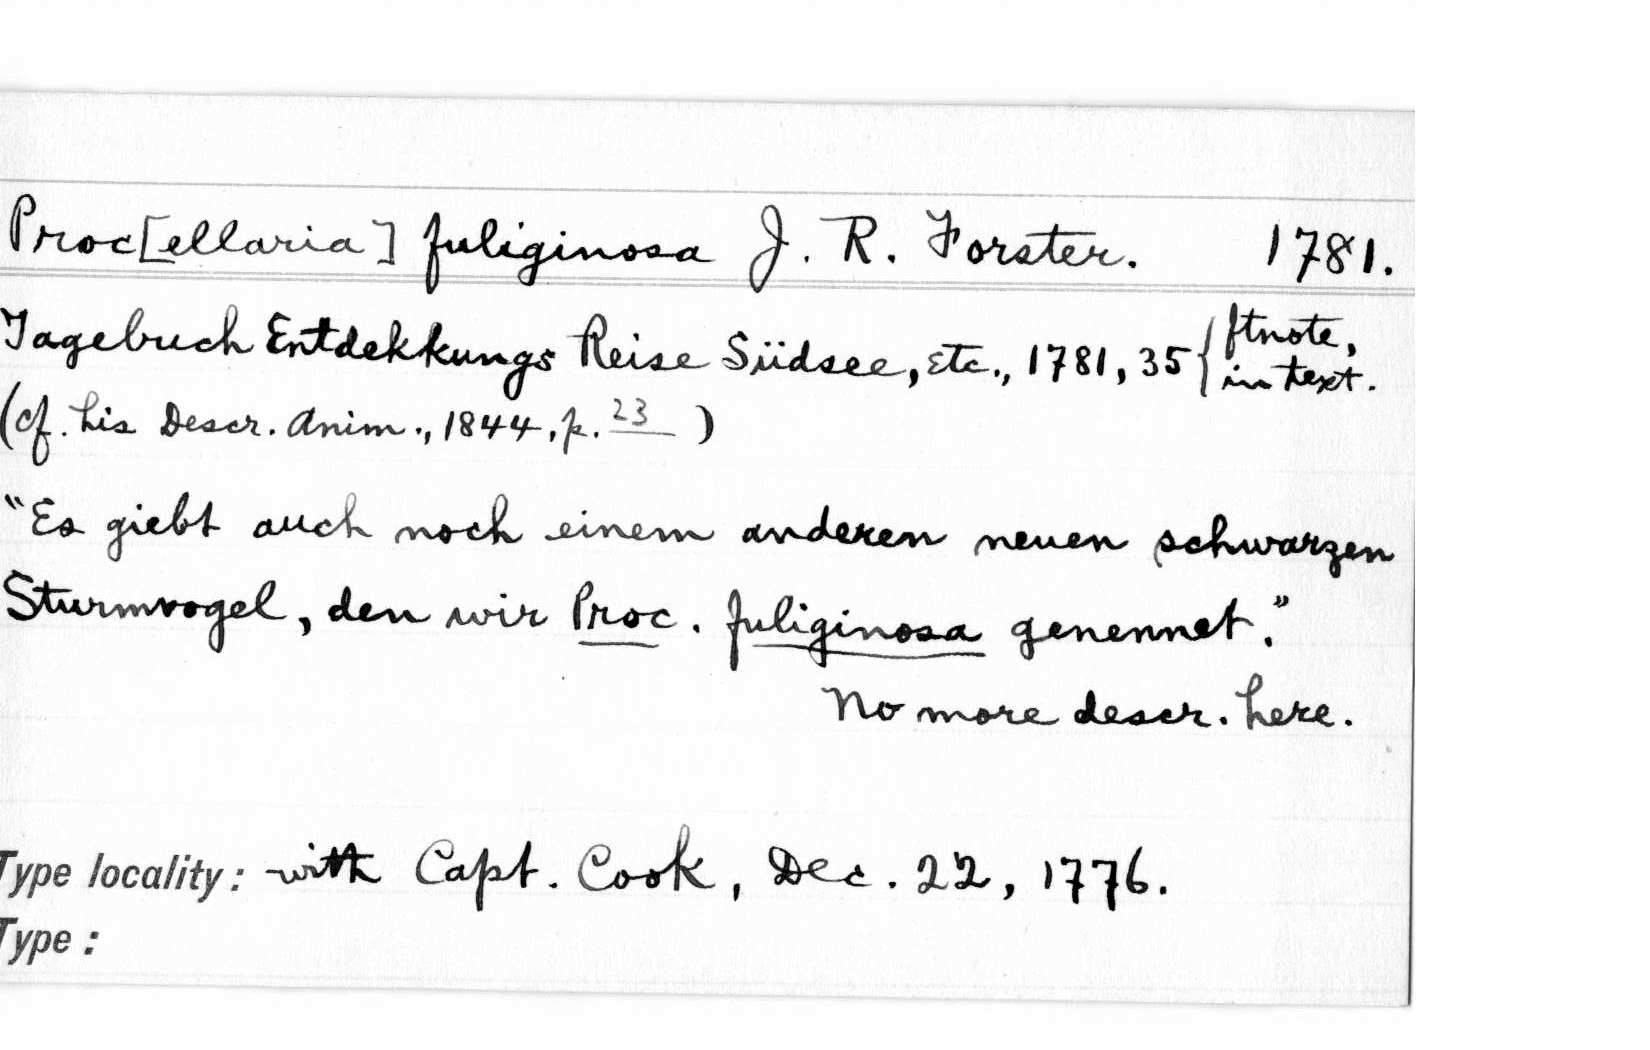 Proc[ellaria] fuliginosa J. R. Forster. 1781.
Tagebuch Entdekkungs Reise Südsee, etc., 1781, 35 { ftnote, in text.
(cf. his Descr. Anim., 1844, p. 23 )
"Es giebt auch noch einem anderen neuen schwarzen
Sturmvogel, den wir Proc. fuliginosa genennet."
No more descr. here.
Type locality: with Capt. Cook, Dec. 22, 1776.
Type: